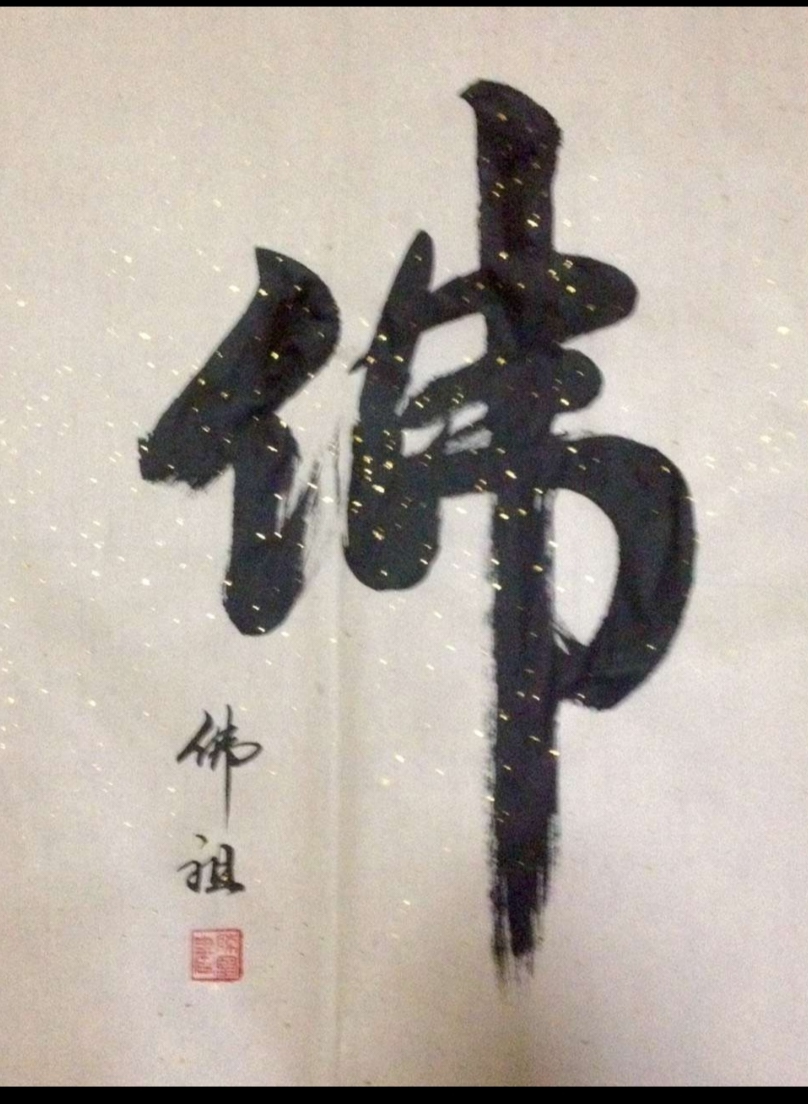 佛
佛祖